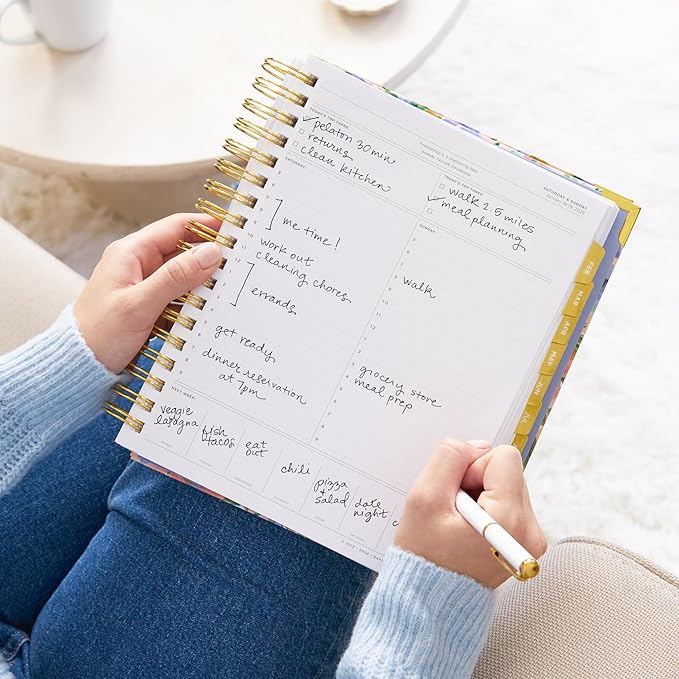 TODAY'S TOP THREE
✓ pelaton 30 min
returns
clean kitchen
SATURDAY & SUNDAY
TODAY'S TOP THREE
walk 2.5 miles
✓ meal planning
SATURDAY:
me time!
work out
cleaning chores
errands
get ready
dinner reservation
at 7pm
SUNDAY:
walk
grocery store
meal prep
NEXT WEEK:
veggie
lasagna
fish
tacos
eat
out
chili
pizza
+
salad
date
night
FEB
MAR
APR
MAY
JUN
JUL